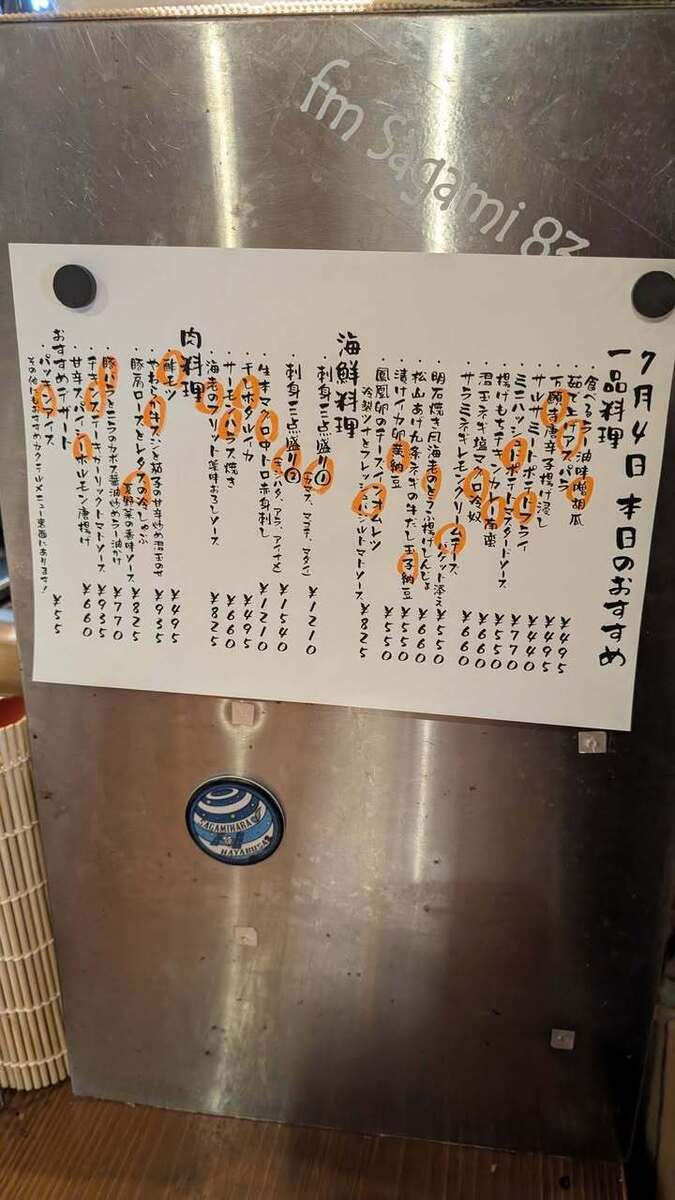 fm Sagami 83
7月4日 本日のおすすめ
一品料理
・食べるラー油味噌胡瓜 ¥495
・茹で上げアスパラ ¥495
・万願寺唐辛子揚げ浸し ¥440
・サルサミートポテトフライ ¥770
・ミニハッシュドポテトマスタードソース ¥550
・揚げもちチキンカレー南蛮 ¥660
・君玉ネギ塩マグロ冷奴 ¥660
・サラミネギレモンクリームチーズ、バゲット添え ¥550
・明石焼き風海老のとろろ揚げしんじょ ¥660
・松山あげ九条ネギの牛だし玉子納豆 ¥550
・漬けイカ卵黄納豆 ¥550
・鳳凰卵のチーズインオムレツ
冷製ツナとフレッシュバジルトマトソース ¥825
海鮮料理
・刺身三点盛り① ¥1210
・刺身三点盛り② ¥1540
・生本マグロ中トロ赤身刺し ¥1210
・チンホタルイカ ¥495
・サーモンハラス焼き ¥660
・海老のフリット薬味おろしソース ¥825
肉料理
・酢モツ ¥495
・やわらか牛タンと茄子の甘辛炒め温玉のせ ¥935
・豚肩ロースとレタスの冷しゃぶ
夏野菜の香味ソース ¥825
・豚バラとニラのカポス醤油炒めラー油かけ ¥770
・チキンステーキガーリックトマトソース ¥935
・甘辛スパイシーホルモン唐揚げ ¥660
おすすめデザート
・パッキンアイス ¥55
その他にもおすすめカクテルメニュー裏面にあります!
SAGAMIHARA
HAYABUSA